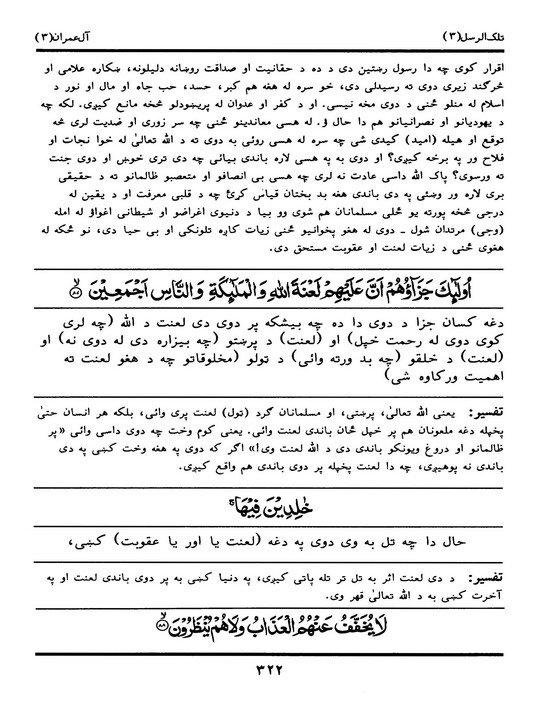 تلک الرسل(۳) آل عمران(۳)
اقرار کوی چه دا رسول رښتین دی د ده د حقانیت او صداقت روښانه دلیلونه، ښکاره علامی او
څرگند زیری دوی ته رسیدلی دی، خو سره له هغه هم کبر، حسد، حب جاه او مال او نور د
اسلام له منلو څخنی د دوی مخه نیسی. او د کفر او عدوان له پریښودلو څخه مانع کیږی. لکه چه
د یهودیانو او نصرانیانو هم دا حال ؤ. له هسی معاندینو څخنی چه سر زوری او ضدیت لری څه
توقع او هیله (امید) کیدی شی چه سره له هسی روئی به دوی ته د الله تعالیٰ له خوا نجات او
فلاح ور په برخه کیږی؟ او دوی به په هسی لاره باندی بیائی چه دی تری خوښ او دوی جنت
ته ورسوی؟ پاک الله داسی عادت نه لری چه هسی بی انصافو او متعصبو ظالمانو ته د حقیقی
بری لاره ور وښئی په دی باندی هغه بد بختان قیاس کړئ چه د قلبی معرفت او د یقین له
درجی څخه پورته یو ځلی مسلمانان هم شوی وو بیا د دنیوی اغراضو او شیطانی اغواؤ له امله
(وجی) مرتدان شول ـ دوی له هغو پخوانیو څخنی زیات کاږه تلونکی او بی حیا دی، نو څکه له
هغوی څخنی د زیات لعنت او عقوبت مستحق دی.
اُولٰٓئِكَ جَزَآؤُهُمْ اَنَّ عَلَيْهِمْ لَعْنَةَ اللهِ وَالْمَلٰٓئِكَةِ وَالنَّاسِ اَجْمَعِيْنَ ۙ۝۸۷
دغه کسان جزا د دوی دا ده چه بیشکه پر دوی دی لعنت د الله (چه لری
کوی دوی له رحمت خپل) او (لعنت) د پرښتو (چه بیزاره دی له دوی نه) او
(لعنت) د خلقو (چه بد ورته وائی) د تولو (مخلوقاتو چه د هغو لعنت ته
اهمیت ورکاوه شی)
تفسیر: یعنی الله تعالیٰ، پرښتی، او مسلمانان گرد (تول) لعنت پری وائی، بلکه هر انسان حتیٰ
پخپله دغه ملعونان هم پر خپل ځان باندی لعنت وائی. یعنی کوم وخت چه دوی داسی وائی «پر
ظالمانو او دروغ ویونکو باندی دی د الله لعنت وی!» اگر که دوی په هغه وخت کښی په دی
باندی نه پوهیږی، چه دا لعنت پخپله پر دوی باندی هم واقع کیږی.
خٰلِدِيْنَ فِيْهَا ۚ
حال دا چه تل به وی دوی په دغه (لعنت یا اور یا عقوبت) کښی،
تفسیر: د دی لعنت اثر به تل تر تله پاتی کیږی، په دنیا کښی به پر دوی باندی لعنت او په
آخرت کښی به د الله تعالیٰ قهر وی.
لَا يُخَفَّفُ عَنْهُمُ الْعَذَابُ وَلَا هُمْ يُنْظَرُوْنَ ۙ۝۸۸
۳۲۲